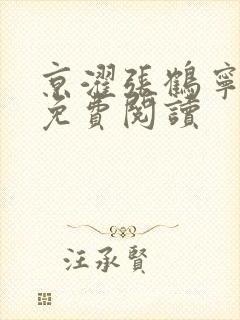 京濯張鶴寧
免費閱讀
汪承賢